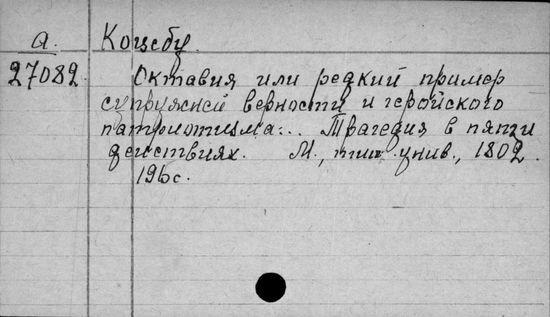 а. Коцебу.
27082. Октавия или редкий пример
супружней верности и геройского
патриотизма... Трагедия в пяти
действиях. М., тип. унив., 1802.
196с.